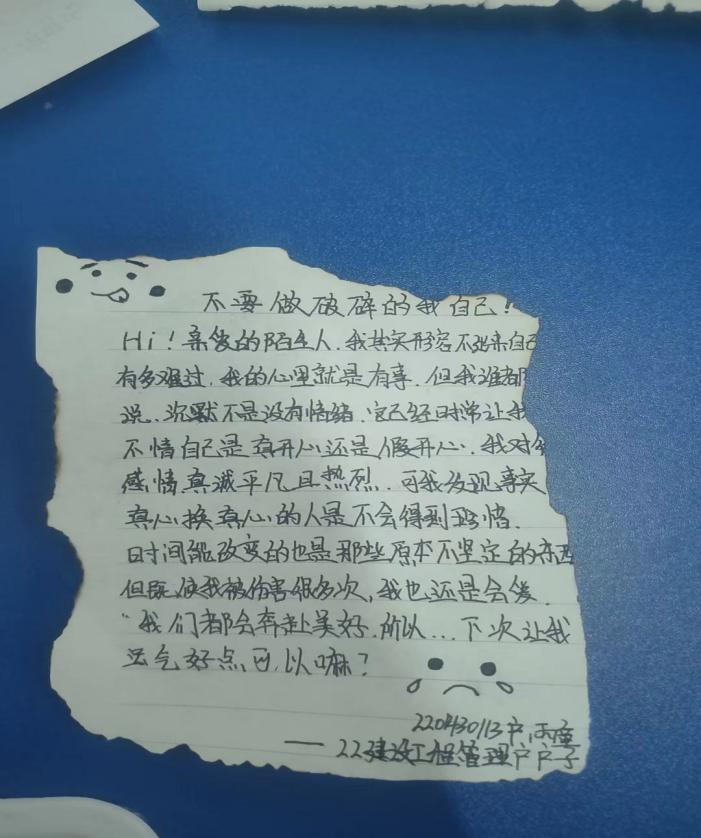 不要做破碎的我自己!
Hi!亲爱的陌生人.我其实形容不出来自己
有多难过,我的心里就是有事.但我谁都
说..沉默不是没有情绪.它已经时常让我
不情自己是真开心还是假开心.我对
感情真诚平凡且热烈.可我发现事实
真心换真心的人是不会得到珍惜.
时间能改变的也是那些原本不坚定的东西
但既使我被伤害很多次,我也还是会爱.
"我们都会奔赴美好.所以...下次让我
运气好点可以嘛?
22043013
——22建设工程管理